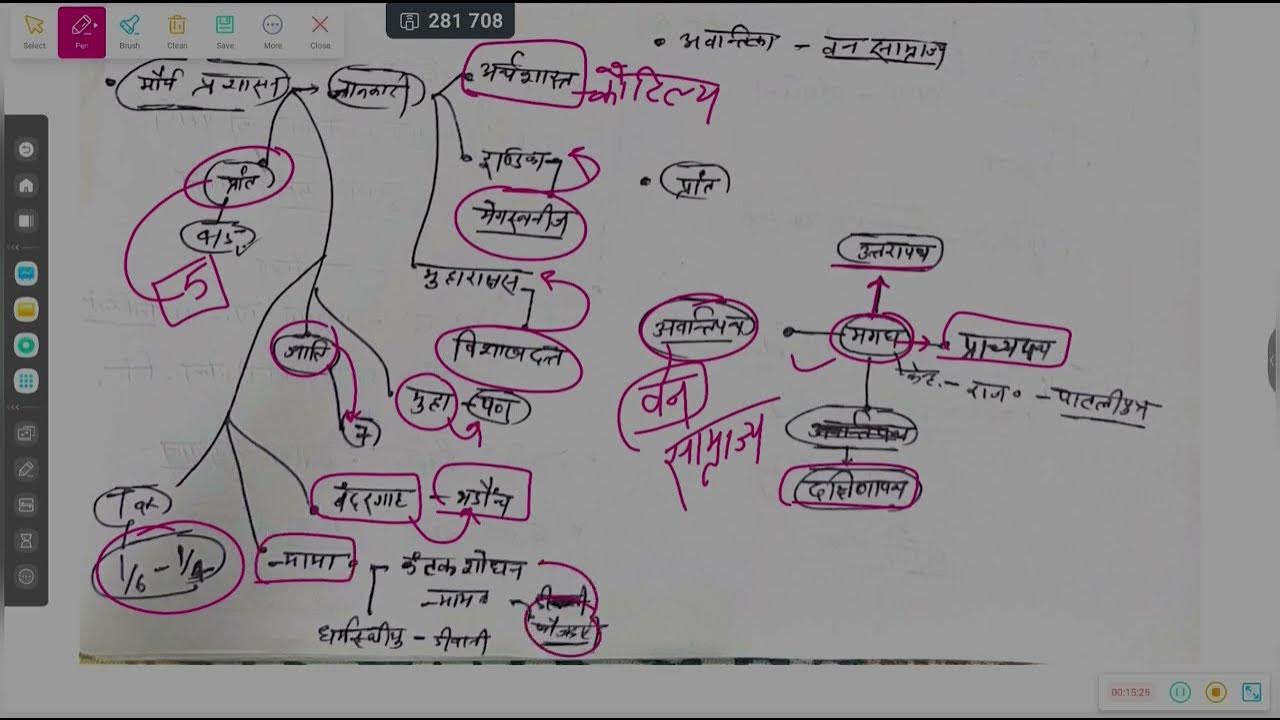 Select
Pen
Brush
Clean
Save
More
Close
281 708
• अवान्तिका - वन साम्राज्य
• मौर्य प्रशासन → जानकारी
अर्थशास्त्र - कौटिल्य
इण्डिका
मेगस्थनीज
प्रांत
4/5
5
• प्रांत
मुद्राराक्षस
विशाखदत्त
उत्तरापथ
अवन्तिपथ
मगध
प्राच्यपथ
केन्द्र. - राज० - पाटलीपुत्र
वन
साम्राज्य
दक्षिणापथ
जाति
7
मुद्रा - पण
बंदरगाह - भडौच
कर
1/6 - 1/4
न्याया
कंटक शोधन
धर्मस्थीय - दीवानी
फौजदारी
00:15:25